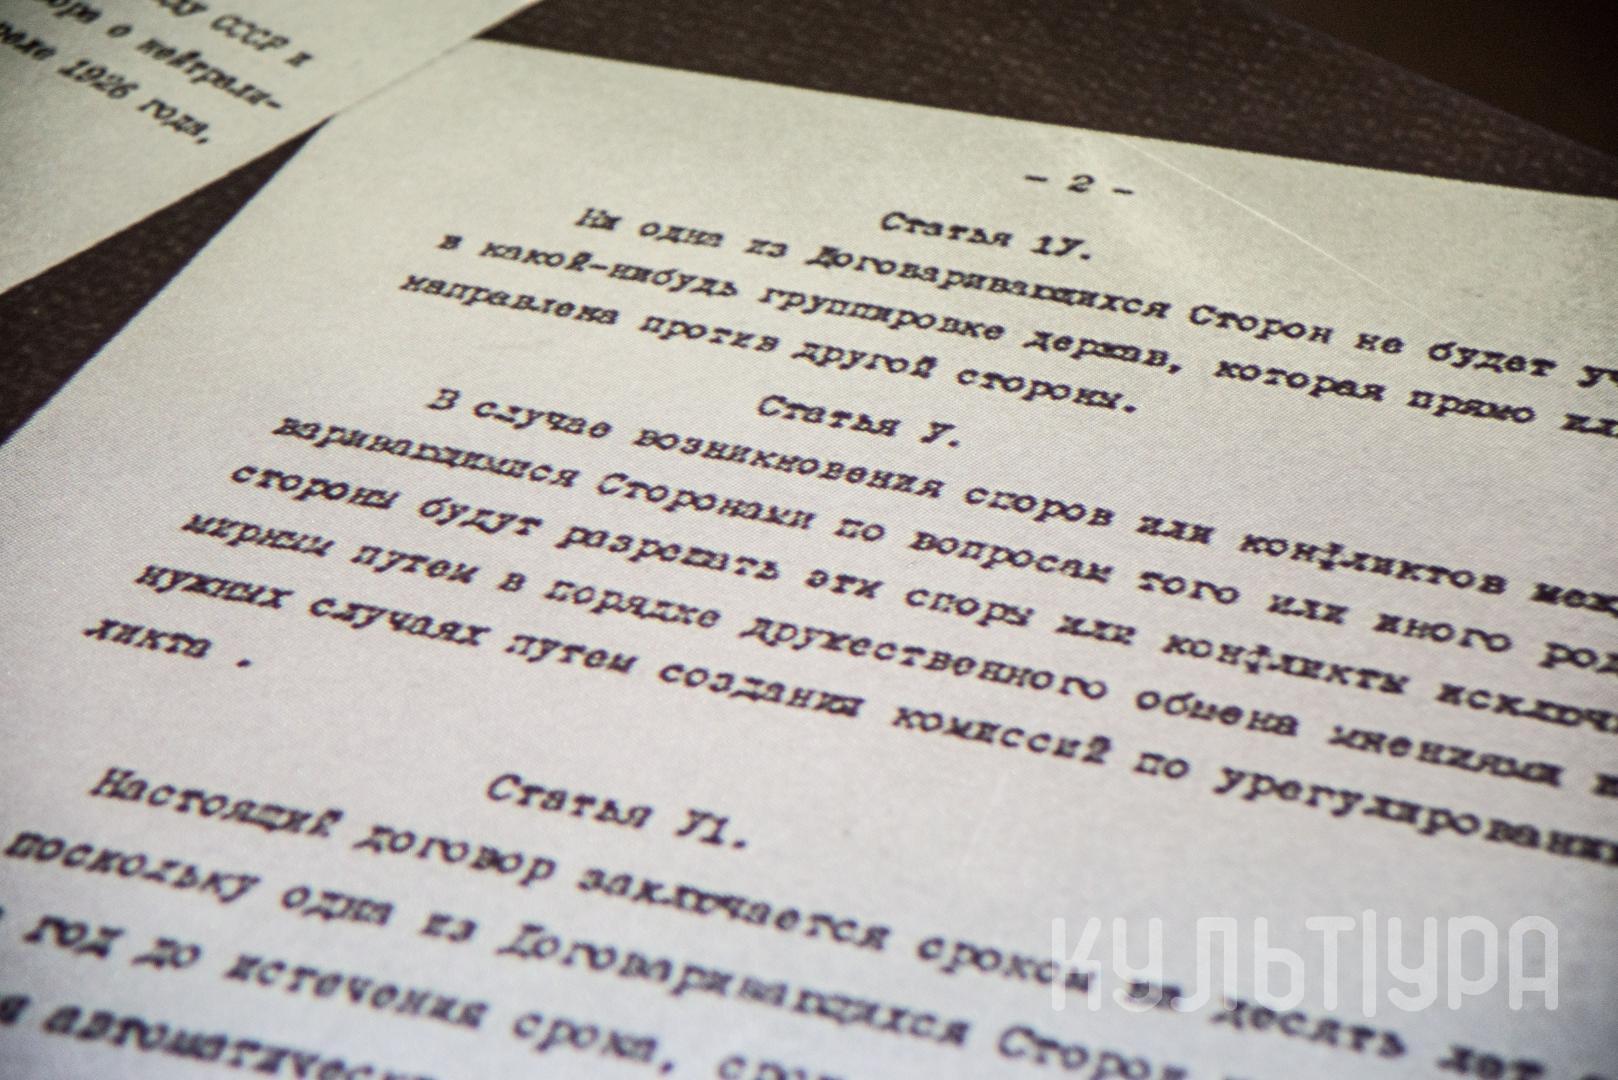 СССР и
о нейтрали-
1926 года,
- 2 -
Статья 1У.
Ни одна из Договаривающихся Сторон не будет
в какой-нибудь группировке держав, которая прямо или
направлена против другой стороны.
Статья У.
В случае возникновения споров или конфликтов
варивающимися Сторонами по вопросам того или иного
стороны будут разрешать эти споры или конфликты
мирным путем в порядке дружественного обмена мнениями
нужных случаях путем создания комиссий по
ликта .
Статья У1.
Настоящий договор заключается сроком на десять лет
поскольку одна из Договаривающихся Сторон
год до истечения срока,
КУЛЬТУРА